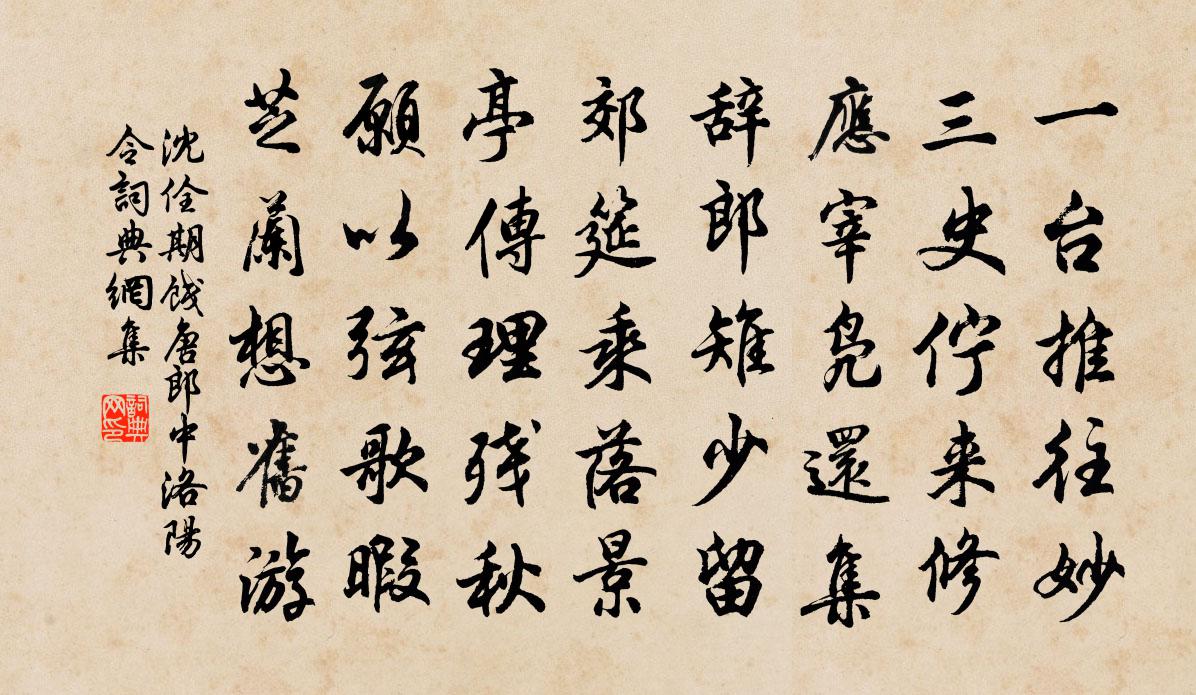 一台推往妙
三史佇来修
應宰凫還集
辞郎雉少留
郊筵乘落景
亭傳理残秋
願以弦歌暇
芝蘭想舊游
沈佺期餞唐郎中洛陽
令詞典網集
詞典网印